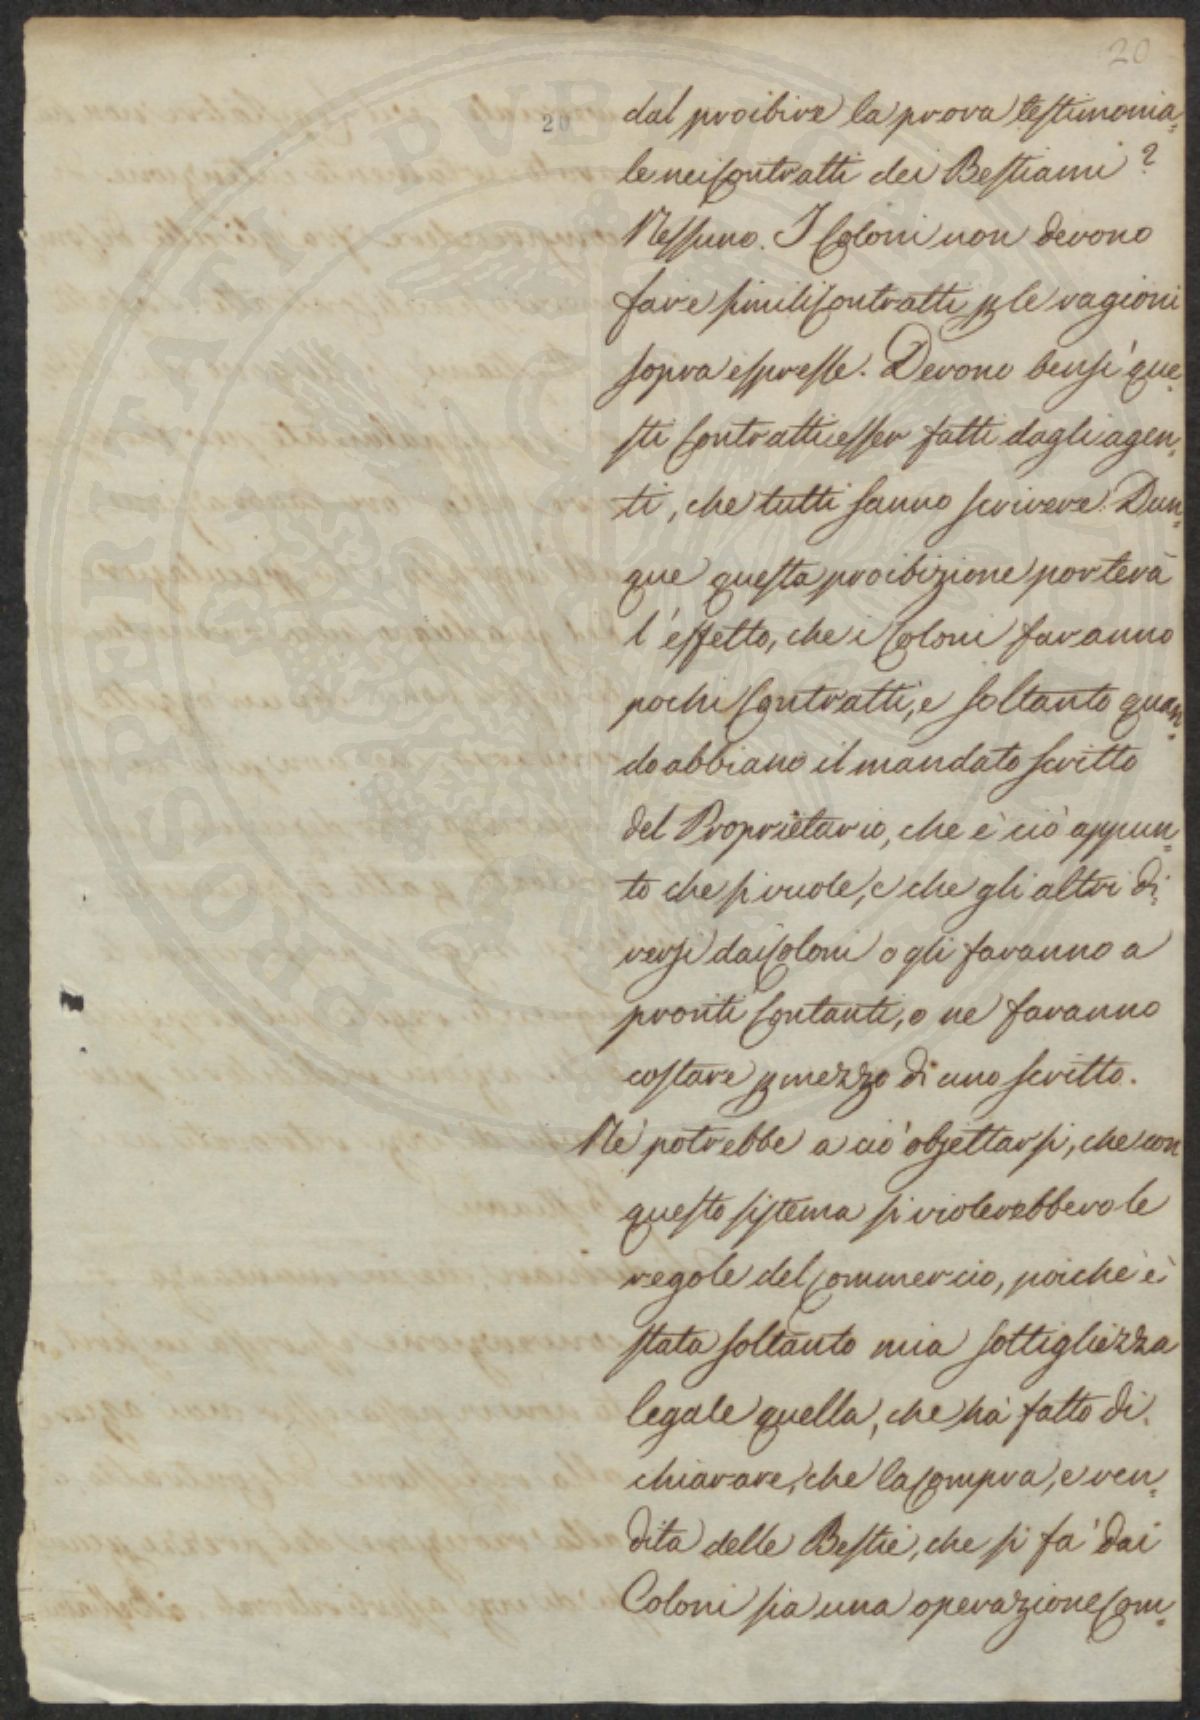 20
20
dal proibire la prova testimonia=
le nei Contratti dei Bestiami?
Nessuno. I Coloni non devono
fare simili Contratti p le ragioni
sopra espresse. Devono bensì que=
sti Contratti esser fatti dagli agen=
ti, che tutti sanno scrivere. Dun=
que questa proibizione porterà
l'effetto, che i Coloni faranno
pochi Contratti, e soltanto quan=
do abbiano il mandato scritto
del Proprietario, che è ciò appun=
to che si vuole, e che gli altri di=
versi dai Coloni o gli faranno a
pronti Contanti, o ne faranno
costare p mezzo di uno scritto.
Né potrebbe a ciò objettarsi, che con
questo sistema si violerebbero le
regole del Commercio, poiché è
stata soltanto mia sottigliezza
legale quella, che hà fatto di=
chiarare, che la Compra, e ven=
dita delle Bestie, che si fà dai
Coloni sia una operazione Com=
PROSPERITATI PUBLICAE